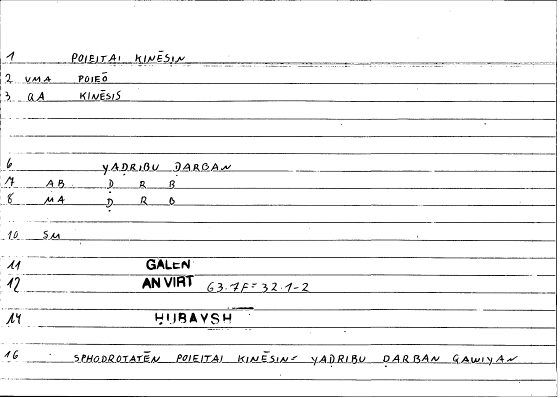 1 POIEITAI KINĒSIN
2 VMA POIEŌ
3 QA KINĒSIS
6 YAḌRIBU ḌARBAN
7 AB Ḍ R B
8 MA Ḍ R B
10 SM
11 GALEN
12 AN VIRT 63.7F = 32.1-2
14 ḤUBAYSH
16 SPHODROTATĒN POIEITAI KINĒSIN = YAḌRIBU ḌARBAN QAWIYAN